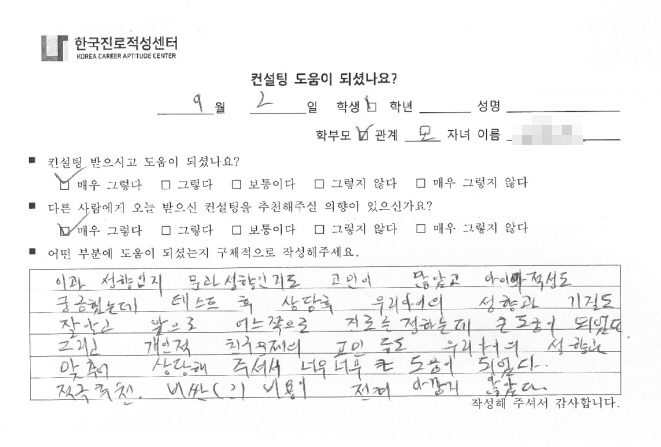 한국진로적성센터
KOREA CAREER APTITUDE CENTER
컨설팅 도움이 되셨나요?
9 월 2 일 학생 □ 학년 성명
학부모 ☑ 관계 모 자녀 이름
■ 컨설팅 받으시고 도움이 되셨나요?
☑ 매우 그렇다 □ 그렇다 □ 보통이다 □ 그렇지 않다 □ 매우 그렇지 않다
■ 다른 사람에게 오늘 받으신 컨설팅을 추천해주실 의향이 있으신가요?
☑ 매우 그렇다 □ 그렇다 □ 보통이다 □ 그렇지 않다 □ 매우 그렇지 않다
■ 어떤 부분에 도움이 되셨는지 구체적으로 작성해주세요.
이과 성향인지 문과성향인지도 고민이 많았고 아이의 적성도
궁금했는데 테스트 후 상담후 우리아이의 성향과 기질도
잘알고 앞으로 어느쪽으로 진로를 정하는데 큰 도움이 되었다
그리고 개인적 고민들도 우리아이의 성향과
맞추어 상담해 주셔서 너무너무 큰 도움이 되었다.
적극추천. 비싼(?) 비용이 전혀 아깝지 않았다.
작성해 주셔서 감사합니다.